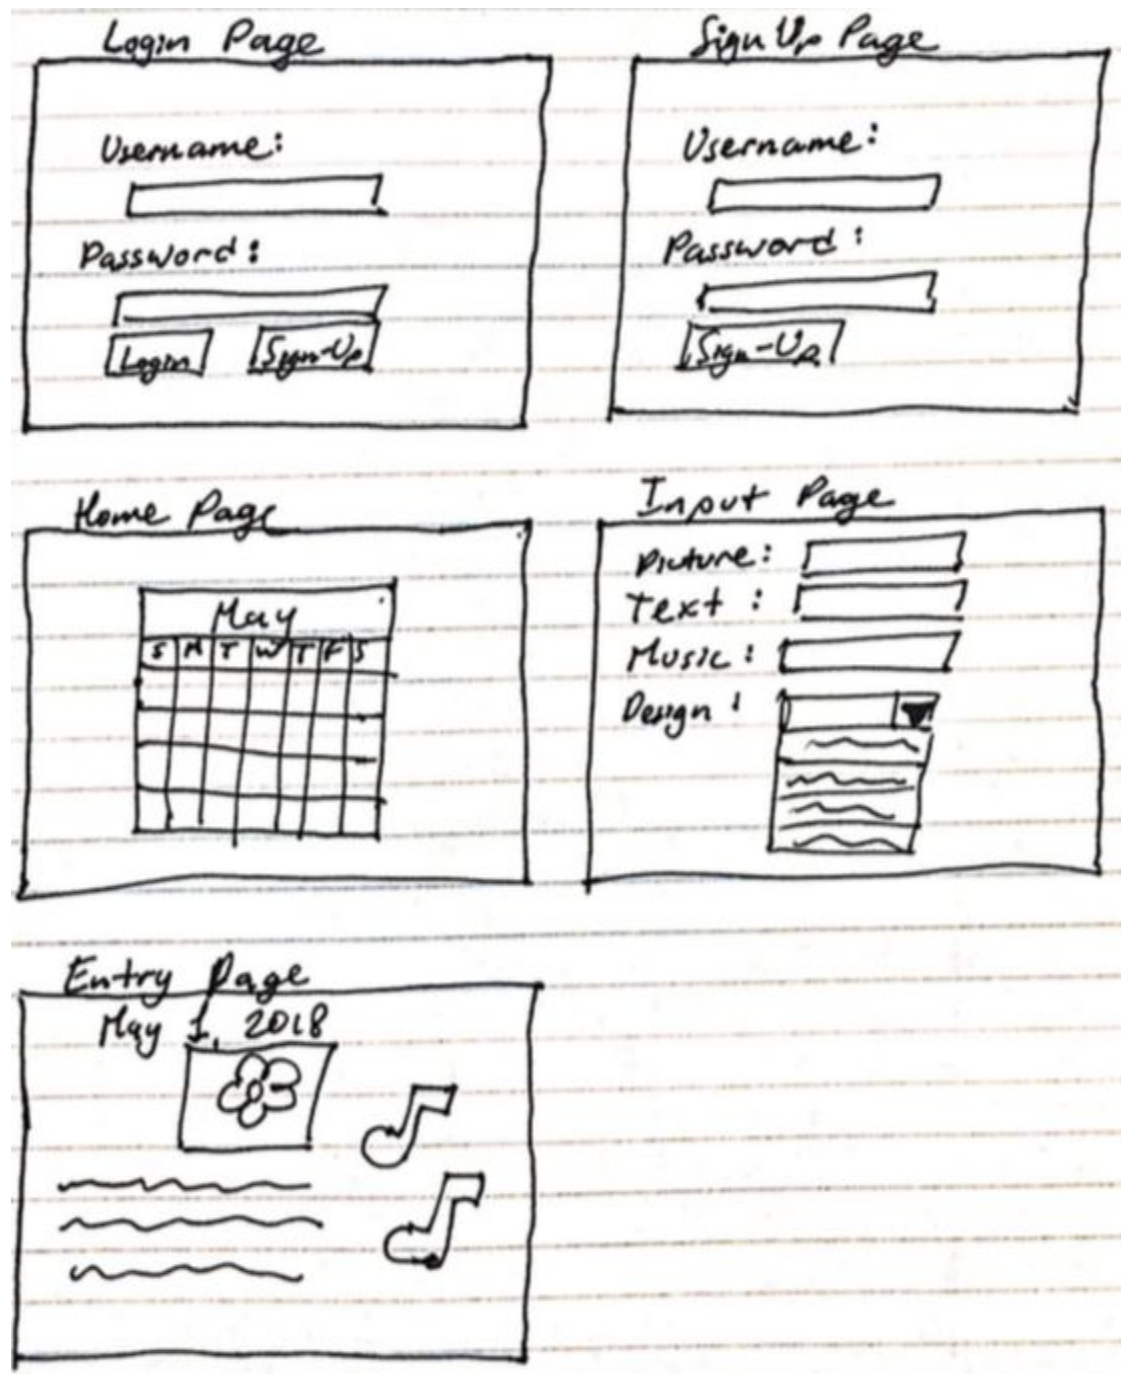 Login Page
Username:
Password:
Login
Sign-Up
Sign Up Page
Username:
Password:
Sign-Up
Home Page
May
S M T W T F S
Input Page
Picture:
Text:
Music:
Design:
Entry Page
May 1, 2018